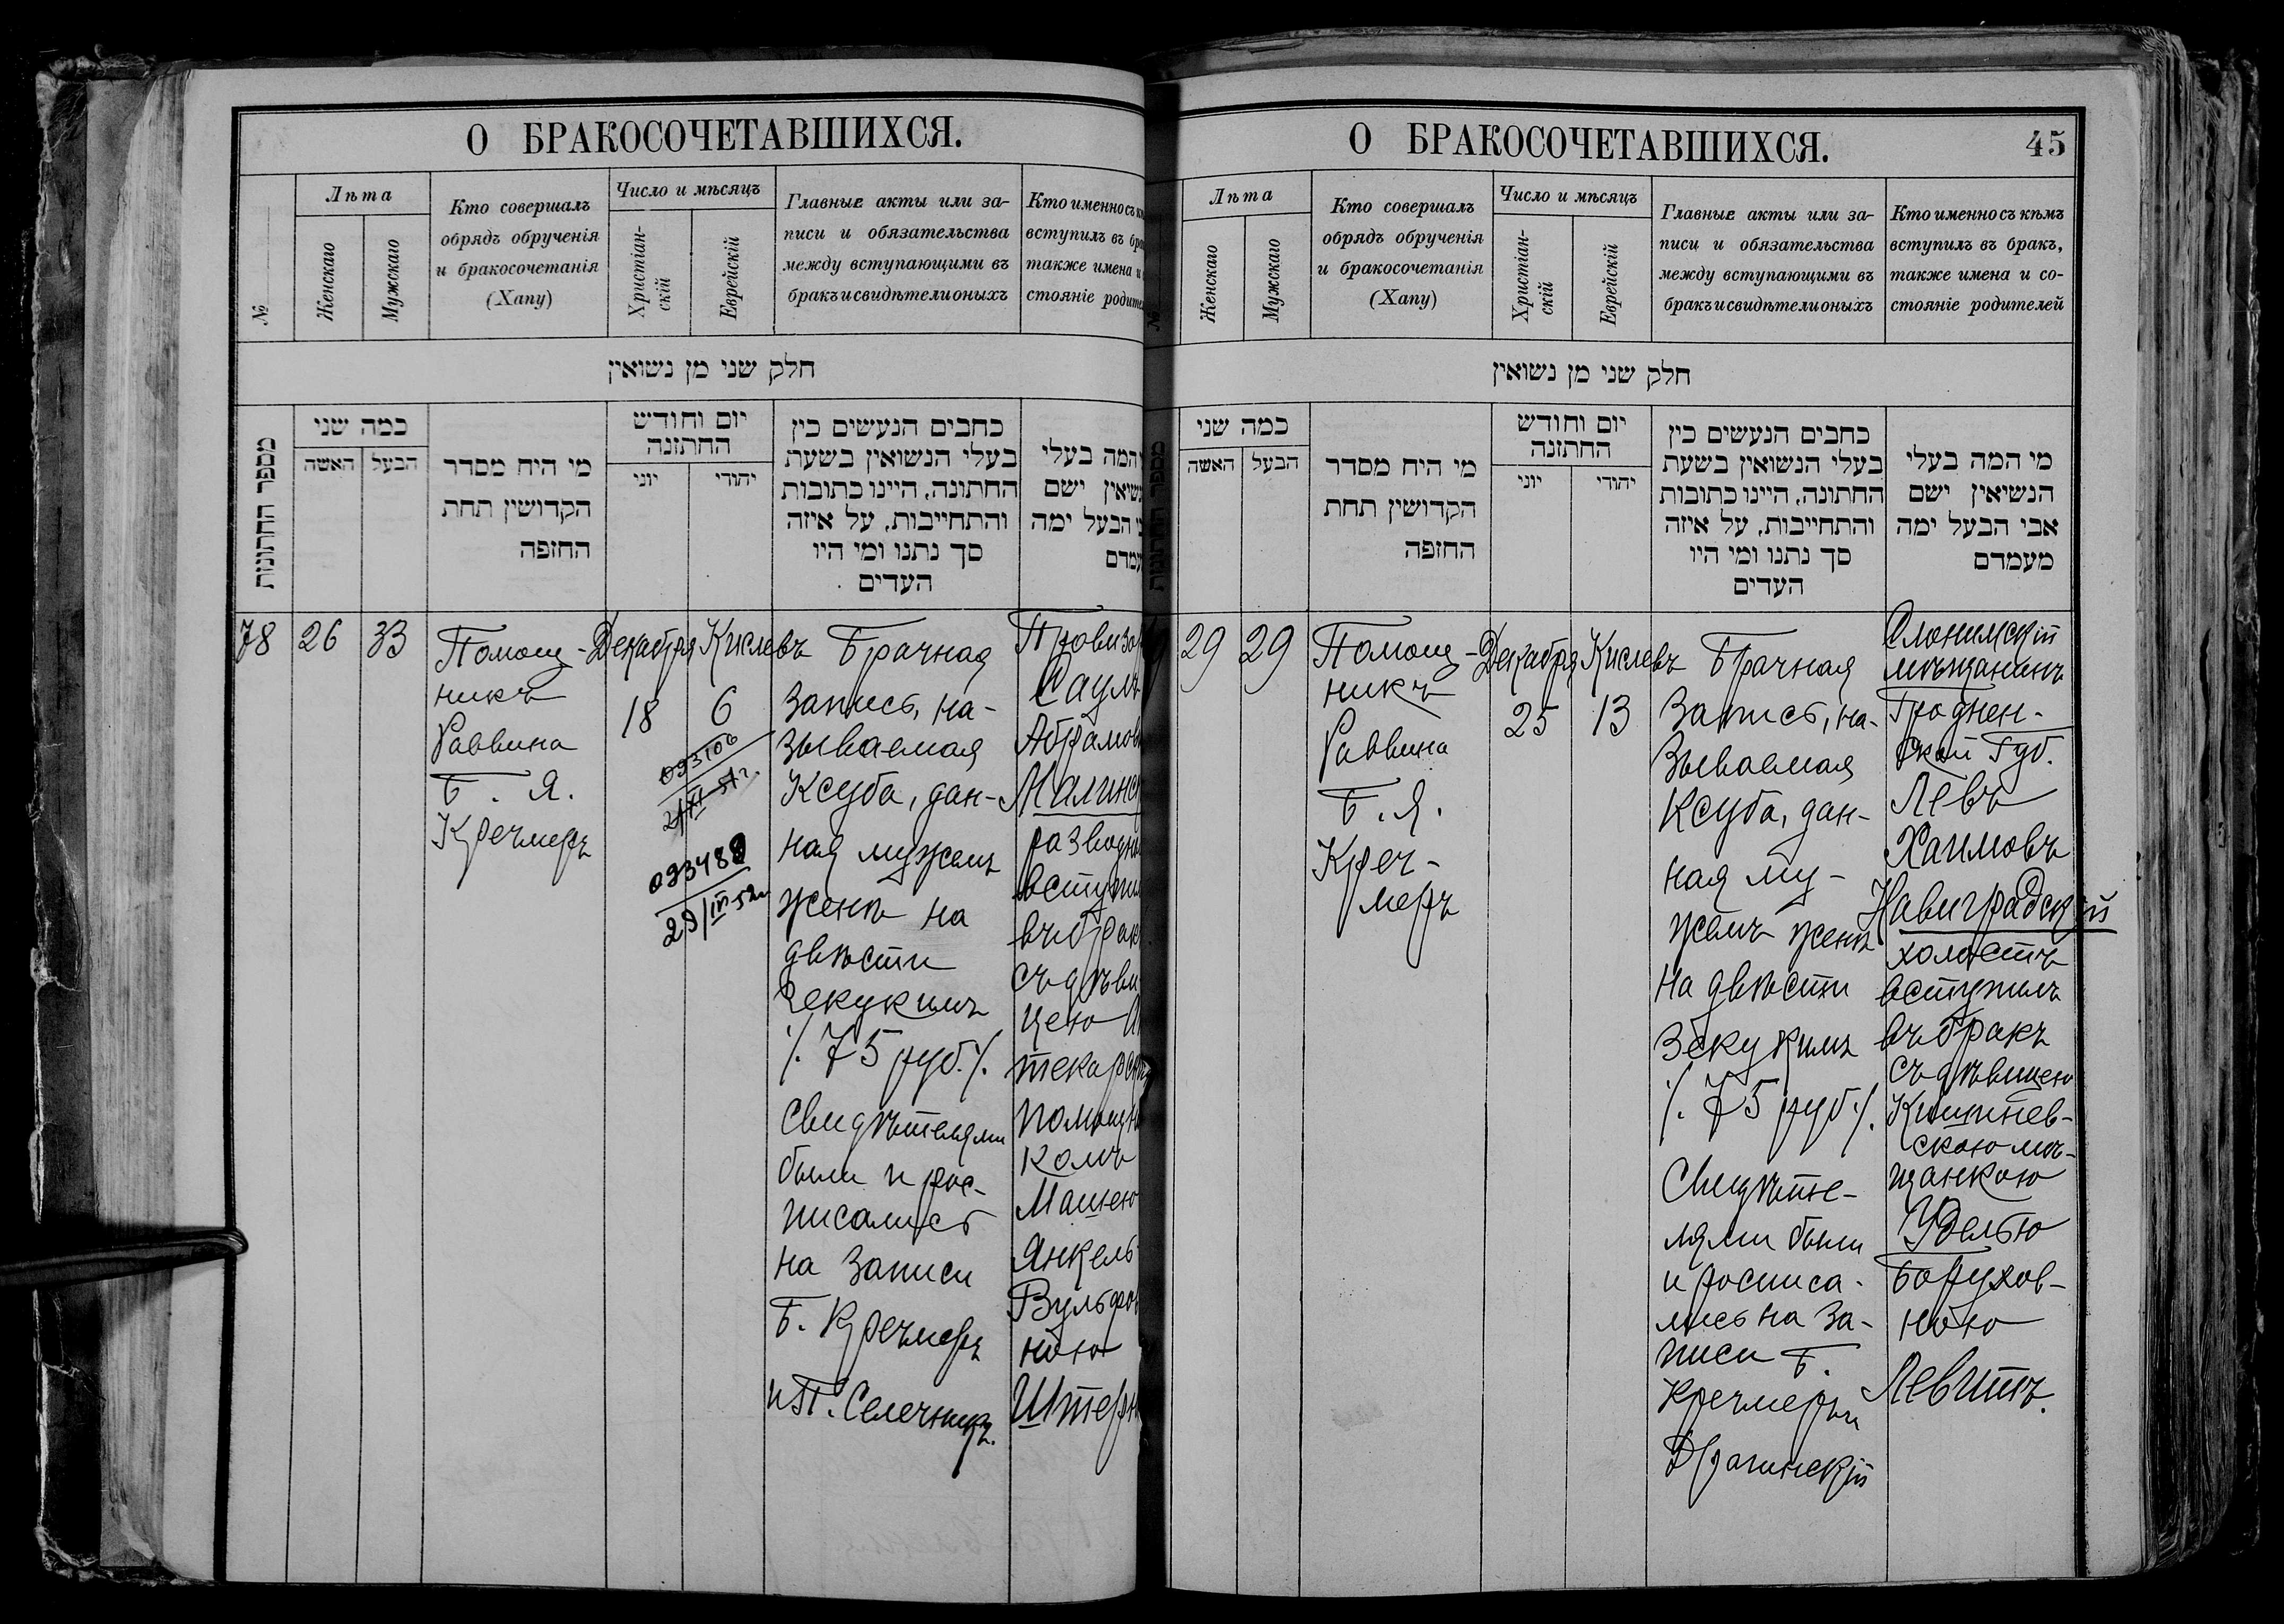 О БРАКОСОЧЕТАВШИХСЯ.
№
Лѣта
Женскаго
Мужскаго
Кто совершалъ
обрядъ обрученія
и бракосочетанія
(Хапу)
Число и мѣсяцъ
Христіан-
скій
Еврейскій
Главные акты или за-
писи и обязательства
между вступающими въ
бракъ и свидѣтели оныхъ
Кто именно съ
вступилъ въ
также имена и
стояніе
חלק שני מן נשואין
מספר החתונות
כמה שני
האשה
הבעל
מי היח מסדר
הקדושין תחת
החופה
יום וחודש
החתונה
יוני
יהודי
כחבים הנעשים כין
בעלי הנשואין בשעת
החתונה, היינו כתובות
והתחייבות, על איזה
סך נתנו ומי היו
העדים
המה בעלי
ישם
הבעל ימה
78
26
33
Помощ-
никъ
Раввина
Б. Я.
Кречмеръ
Декабря
18
Кислевъ
6
093106
21/XI-51г.
093488
29/IV-52г
Брачная
запись, на-
зываемая
Ксуба, дан-
ная мужемъ
женѣ на
двѣсти
Зекукимъ
/. 75 руб./.
Свидѣтелями
были и рос-
писались
на записи
Б. Кречмеръ
и П. Селечникъ.
Провизо
Саулъ
Абрамов
Малинс
разводн
вступи
въ брак
съ дѣви
цею А
текарск
помощн
комъ
Машею
Янкель-
Вульфов
ною
Штерн
О БРАКОСОЧЕТАВШИХСЯ.
45
№
Лѣта
Женскаго
Мужскаго
Кто совершалъ
обрядъ обрученія
и бракосочетанія
(Хапу)
Число и мѣсяцъ
Христіан-
скій
Еврейскій
Главные акты или за-
писи и обязательства
между вступающими въ
бракъ и свидѣтели оныхъ
Кто именно съ кѣмъ
вступилъ въ бракъ,
также имена и со-
стояніе родителей
חלק שני מן נשואין
כמה שני
האשה
הבעל
מי היח מסדר
הקדושין תחת
החופה
יום וחודש
החתונה
יוני
יהודי
כחבים הנעשים כין
בעלי הנשואין בשעת
החתונה, היינו כתובות
והתחייבות, על איזה
סך נתנו ומי היו
העדים
מי המה בעלי
הנשיאין ישם
אבי הבעל ימה
מעמדם
29
29
Помощ-
никъ
Раввина
Б. Я.
Креч-
меръ
Декабря
25
Кислевъ
13
Брачная
Запись, на-
зываемая
Ксуба, дан-
ная му-
жемъ женѣ
на двѣсти
Зекукимъ
/. 75 руб./.
Свидѣте-
лями были
и росписа-
лись на за-
писи Б.
Кречмеръ и
Драгинскій
Слонимскій
мѣщанинъ
Гроднен-
ской Губ.
Левъ
Хаимовъ
Навиградскій
холостъ
вступилъ
въ бракъ
съ дѣвицею
Кишинев-
скою мѣ-
щанкою
Уделью
Борухов-
ною
Левитъ.